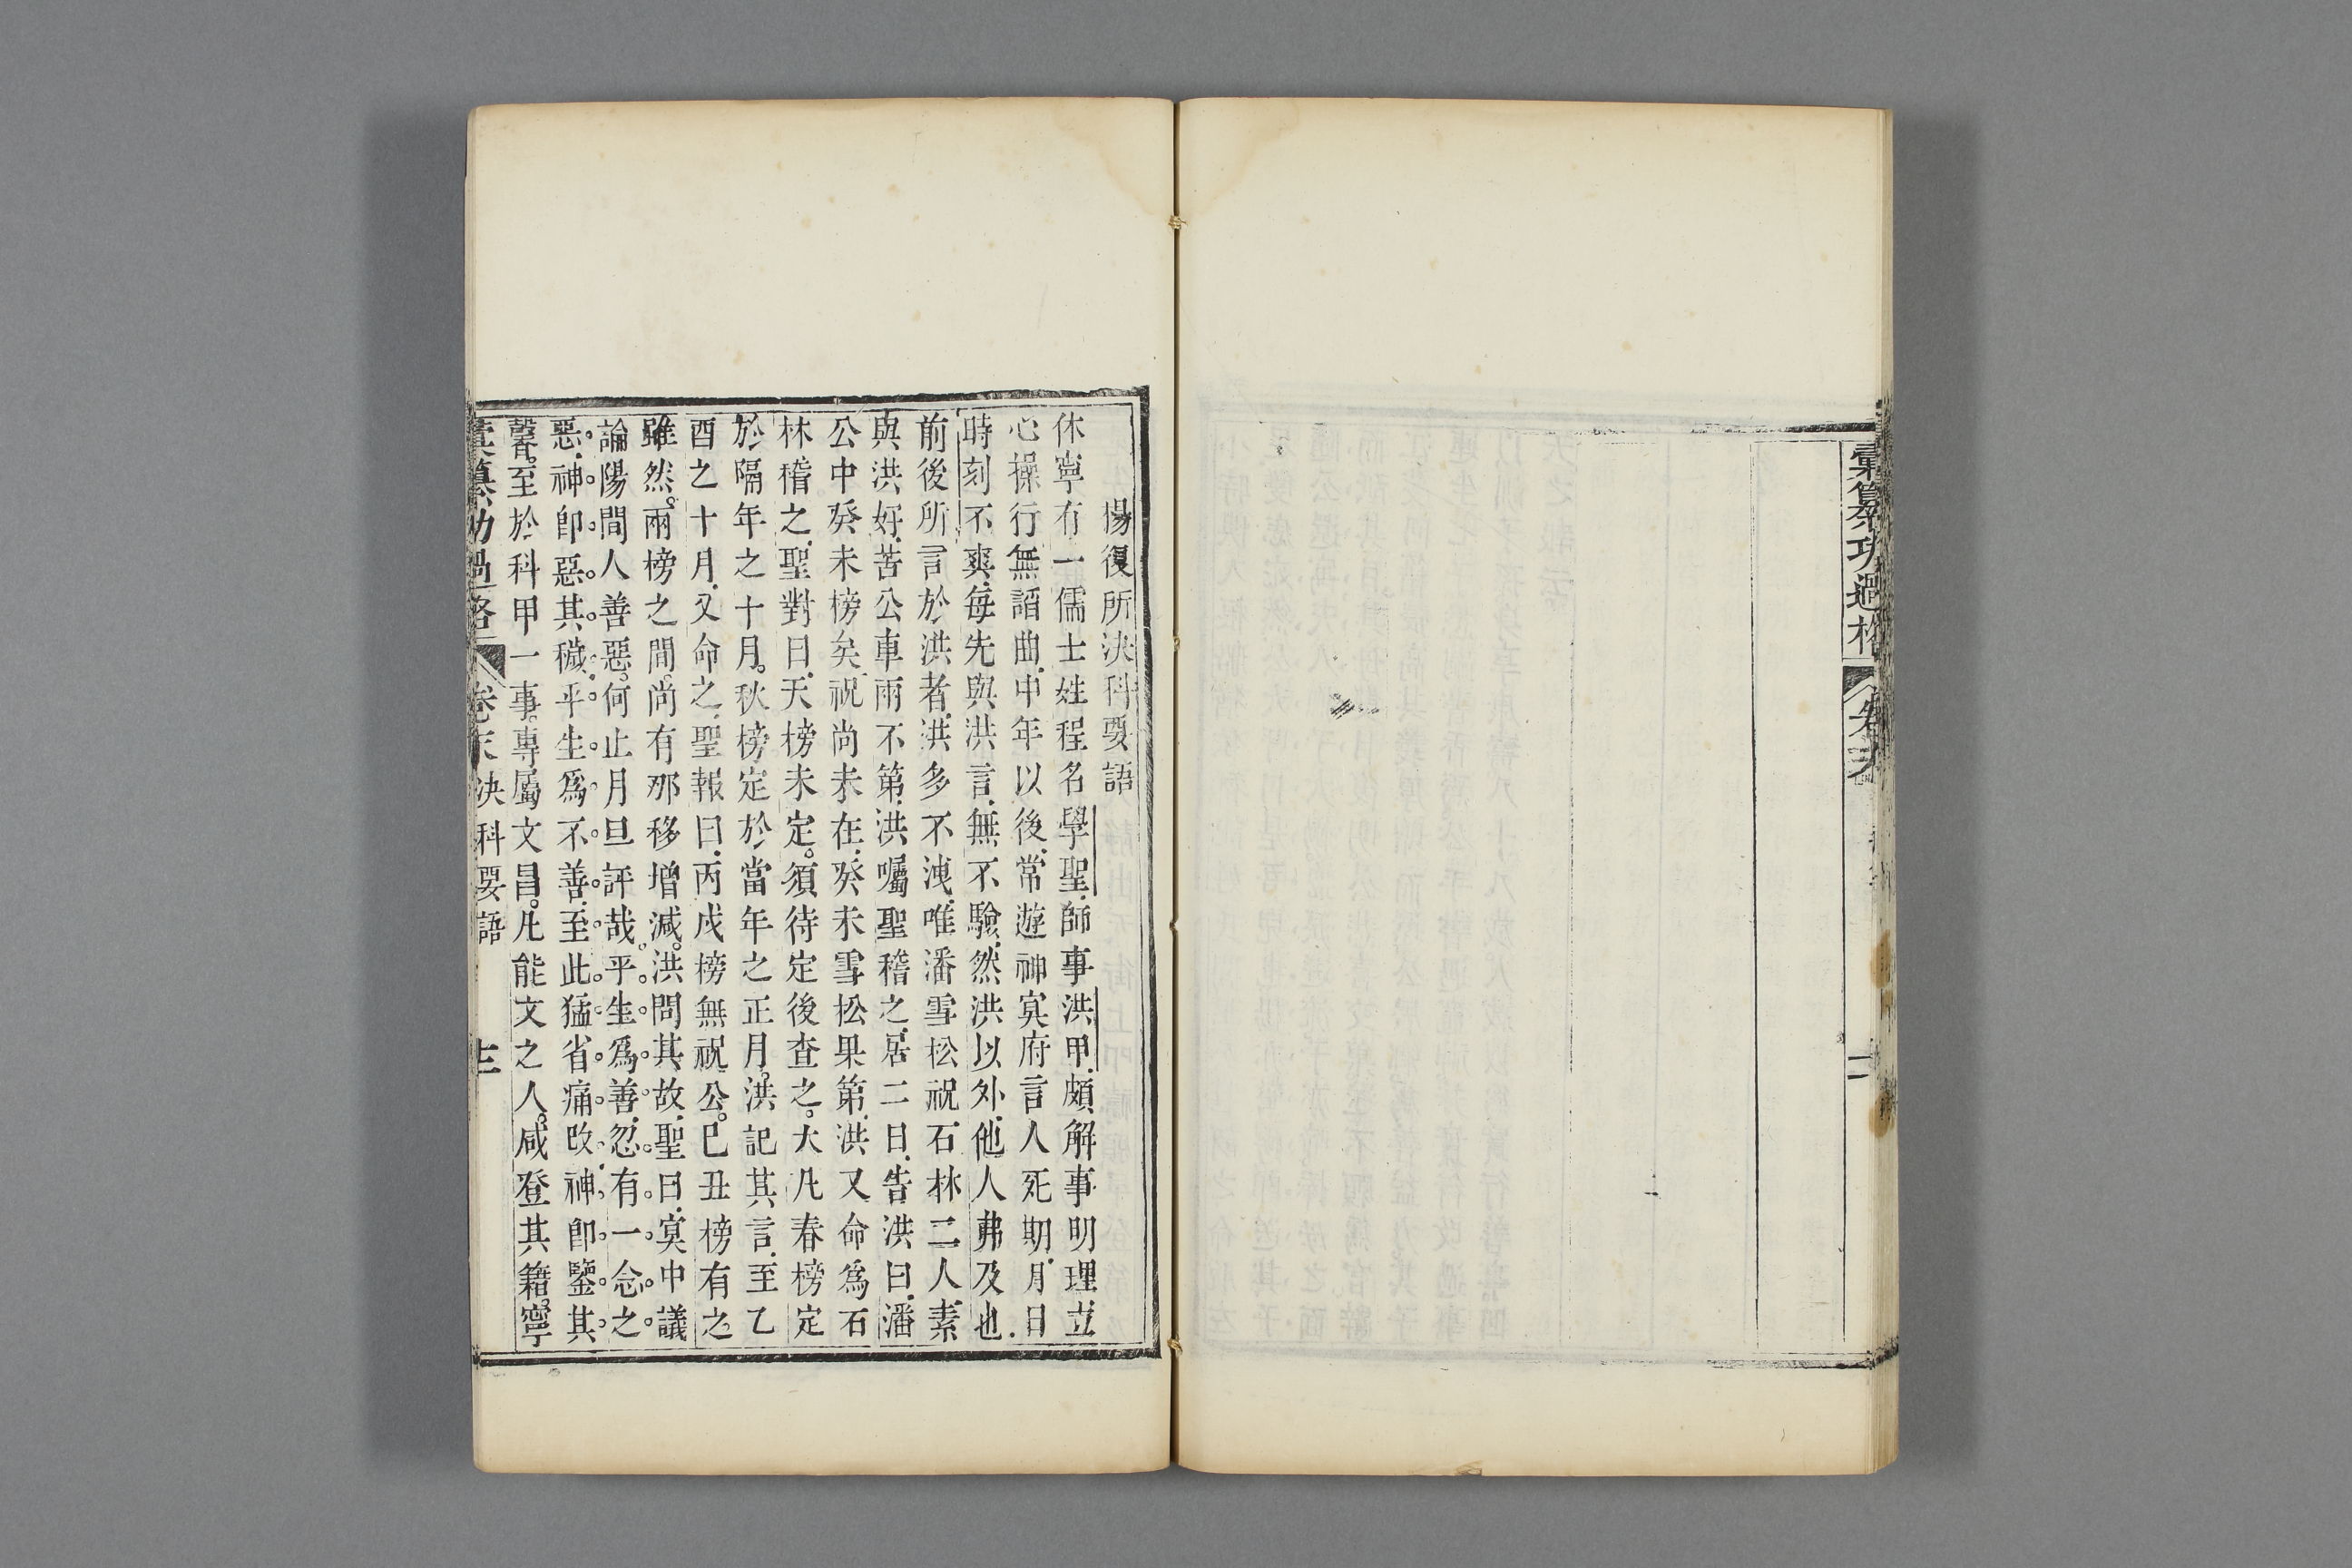 彙纂功過格
卷末
二
楊復所決科要語
休寧有一儒士姓程名學聖師事洪甲頗解事明理立
心操行無諂曲中年以後常遊神冥府言人死期月日
時刻不爽每先與洪言無不驗然洪以外他人弗及也
前後所言於洪者洪多不洩唯潘雪松祝石林二人素
與洪好苦公車兩不第洪囑聖稽之居二日告洪曰潘
公中癸未榜矣祝尚未在癸未雪松果第洪又命爲石
林稽之聖對曰天榜未定須待定後查之大凡春榜定
於隔年之十月秋榜定於當年之正月洪記其言至乙
酉之十月又命之聖報曰丙戌榜無祝公已丑榜有之
雖然兩榜之間尚有那移增減洪問其故聖曰冥中議
論陽間人善惡何止月旦評哉平生爲善忽有一念之
惡神卽惡其穢平生爲不善至此猛省痛改神卽鑒其
馨至於科甲一事專屬文昌凡能文之人咸登其籍寧
彙纂功過格
卷末決科要語